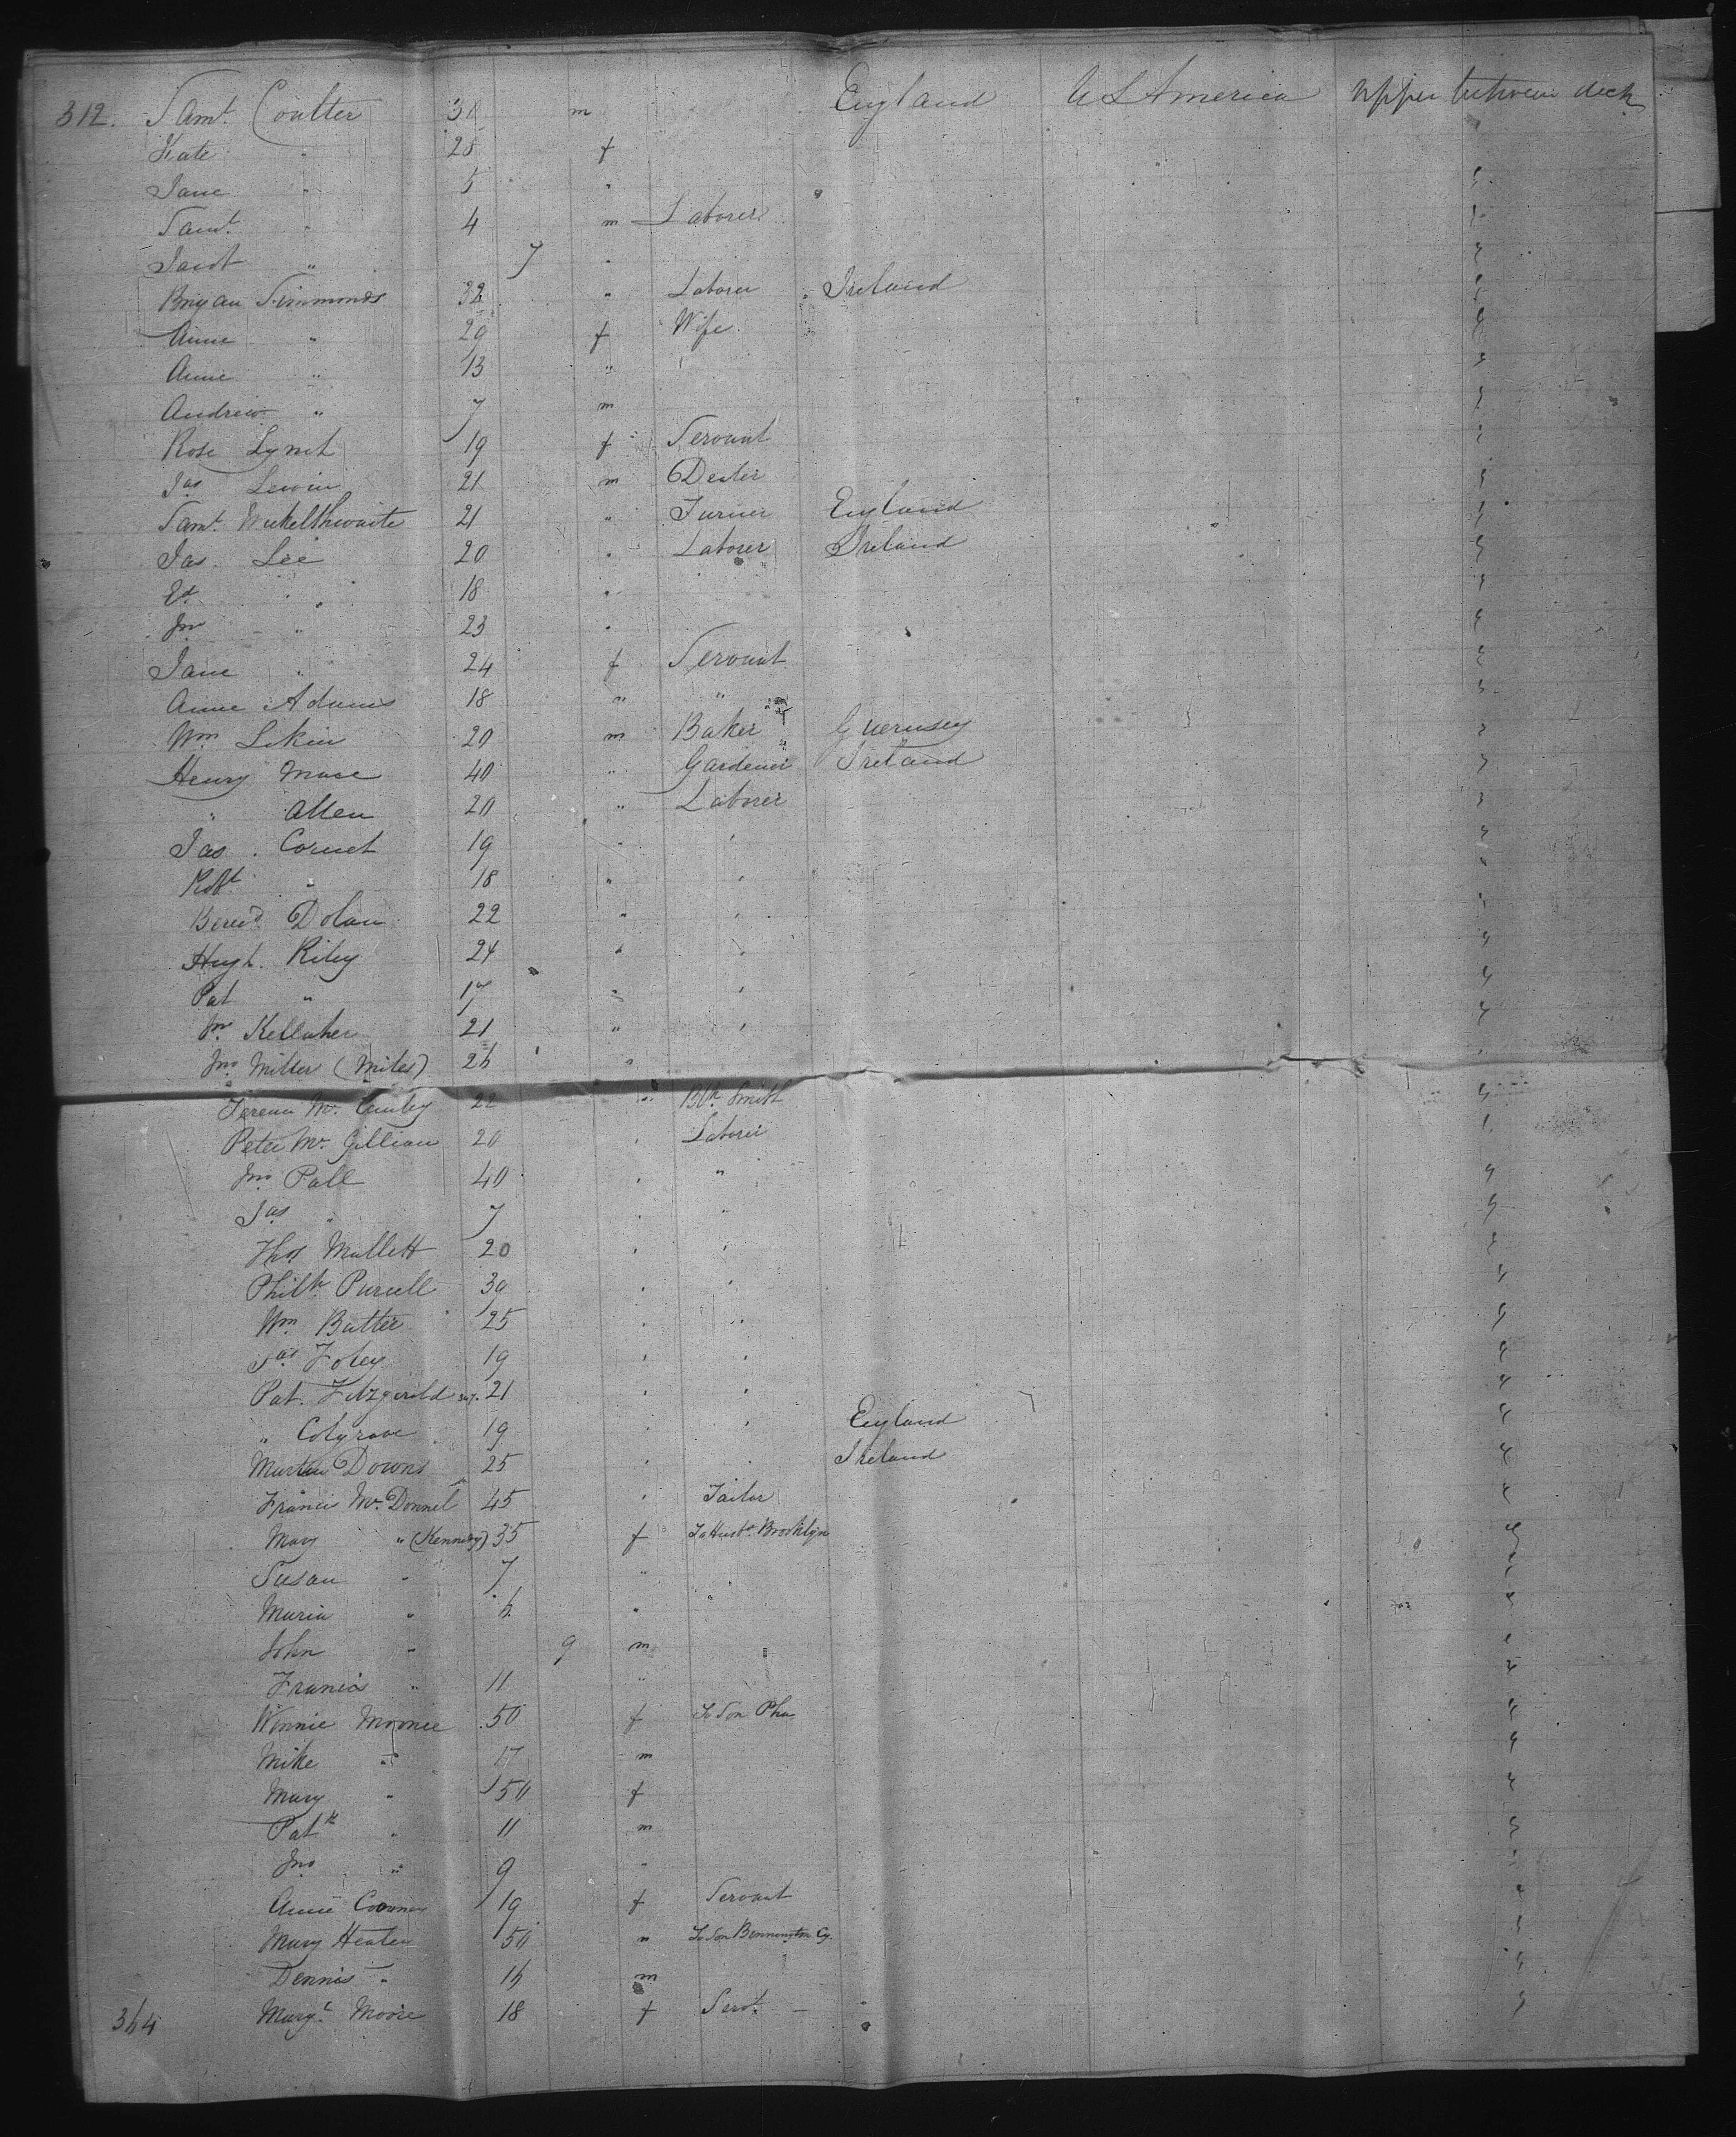 312. Saml. Coulter 30 m England U S America Upper between deck
Kate " 28 f
Jane " 5 "
Saml. " 4 m Laborer
" 7 "
Bryan Simmonds 32 " Laborer Ireland
Anne " 29 f Wife
Annie " 13 "
Andrew " 7 m
Rose Lynch 19 f Servant
Jas Lewin 21 m Dealer
Saml. 21 " Turner England
Jas. Lee 20 " Laborer Ireland
Ed " 18 "
Jno " 23 "
Jane " 24 f Servant
Annie Adams 18 " "
Wm Likin 20 m Baker Guernsey
Henry Mace 40 " Gardener Ireland
" Allen 20 " Laborer
Jas. Cornet 19 " "
Robt " 18 " "
Bernd. Dolan 22 " "
Hugh. Riley 24 " "
Pat " 17 " "
Jno Kellaher 21 " "
Jno. Miller (Miles) 26 "
22 " Blk Smith
Peter Mc. Gillian 20 " Laborer
Jno Pall 40 " "
Jas " 7 " "
Thos Mullett 20 " "
Philp. Purcell 39 " "
Wm. Butler 25 " "
Jas Foley 19 " "
Pat. Fitzgerild 21 " "
" Colgrave 19 " " England
Martin Downs 25 " " Ireland
Francis Mc. Donnel 45 " Tailor
Mary " (Kennedy) 35 f To Husbd. Brooklyn
Susan " 7 " "
Maria " 6 " "
John " 9 m
Francis " 11 "
Winnie Moonee 50 f To Son Pha
Mike " 17 m
Mary " 50 f
Patk " 11 m
Jno " 9 "
Annie 19 f Servant
Mary Heaten 50 " To Son Bennington Cy.
Dennis " 16 m
364 Margt. Moore 18 f Servt.